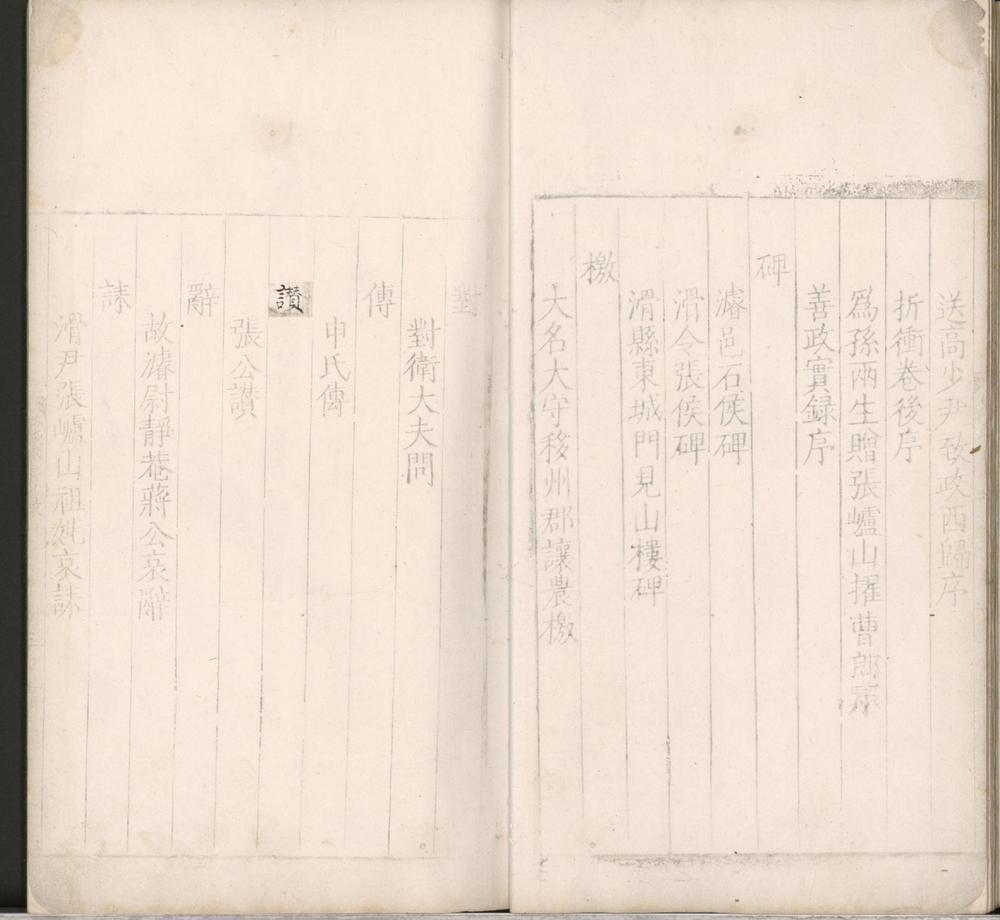 送高少尹致政西歸序
折衝卷後序
爲孫兩生贈張嶟山擢曹郎序
善政實録序
碑
濬邑石侯碑
滑令張侯碑
滑縣東城門見山樓碑
檄
大名大守移州郡讓農檄
對
對衛大夫問
傳
申氏傳
讃
張公讃
辭
故濬尉靜菴蔣公哀辭
誄
滑尹張嶟山祖妣哀誄